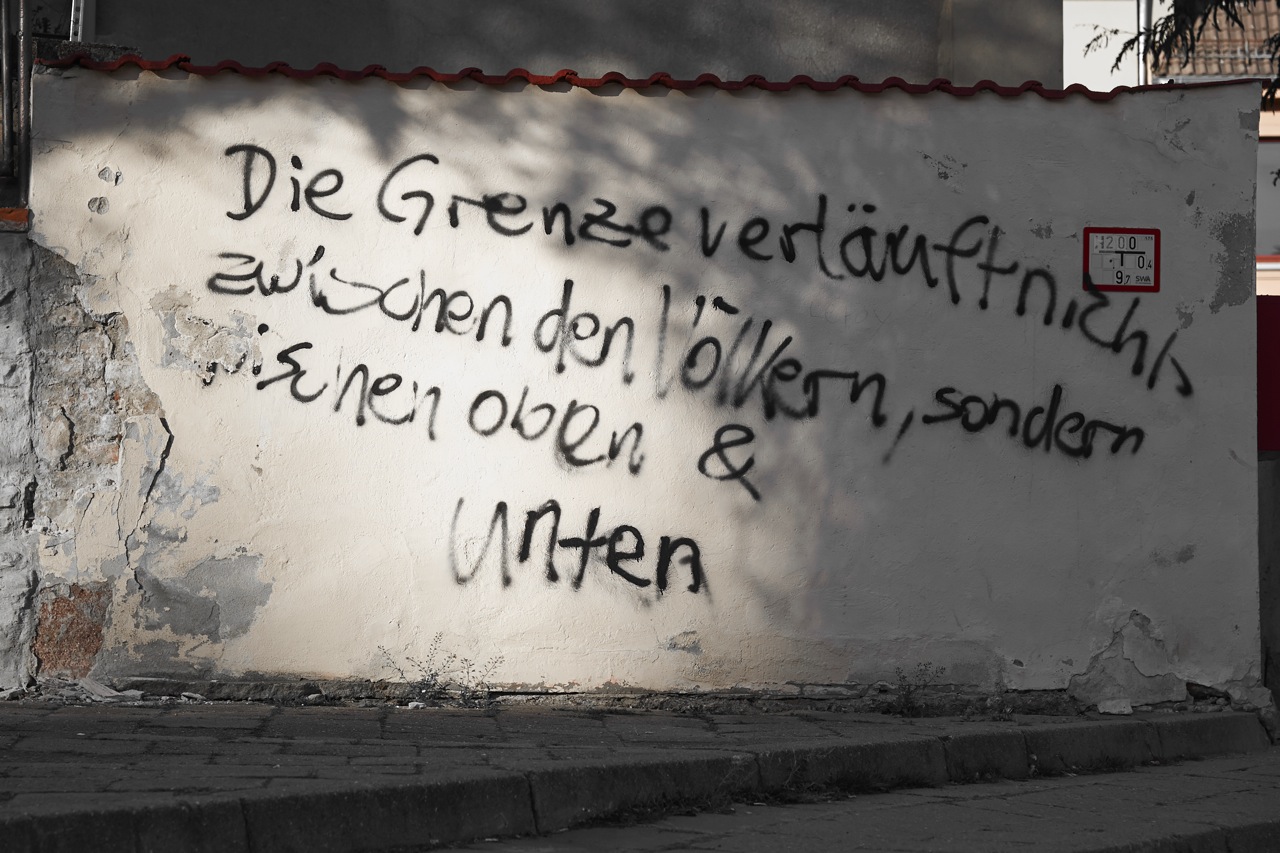 Die Grenze verläuft nicht
zwischen den Völkern, sondern
zwischen oben &
Unten
H200
T 0,4
9,7 SWA